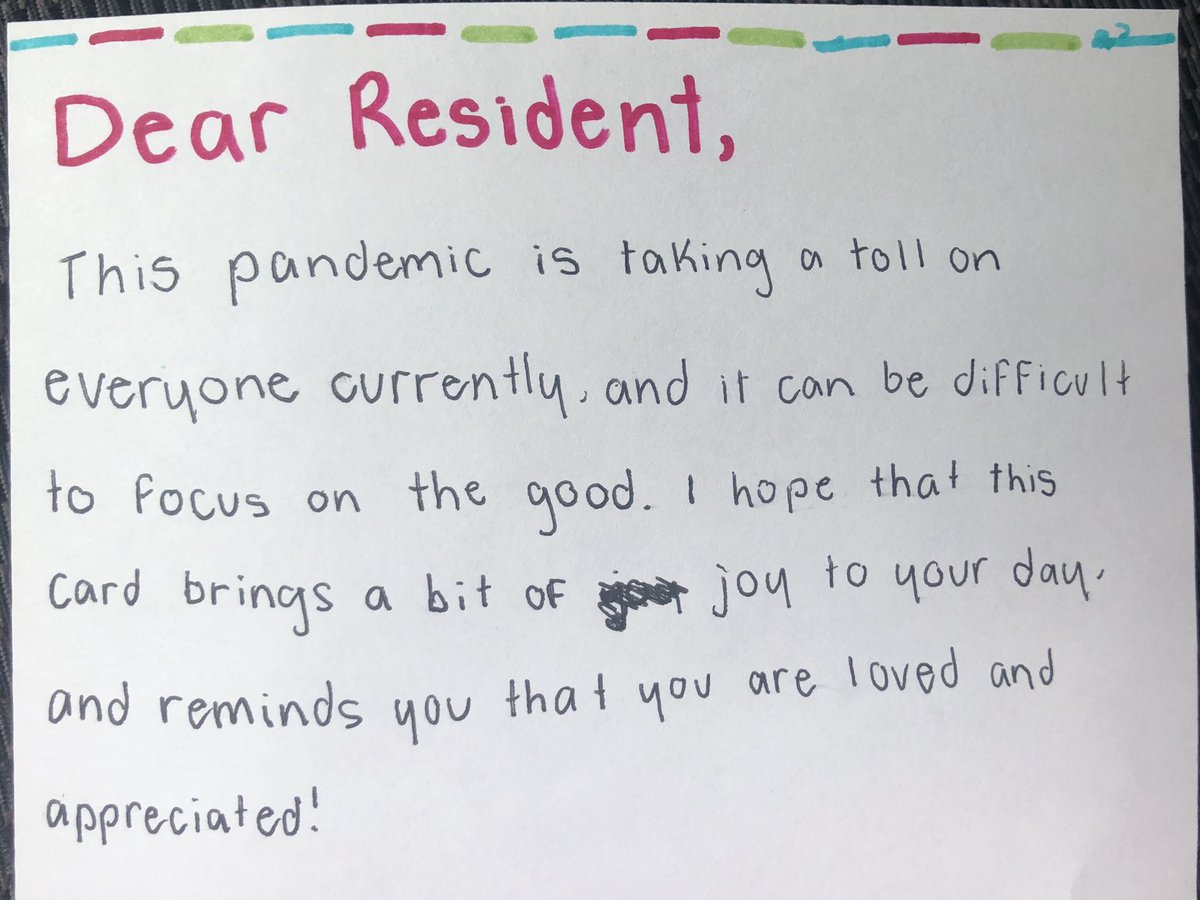 Dear Resident,
This pandemic is taking a toll on
everyone currently, and it can be difficult
to focus on the good. I hope that this
card brings a bit of joy to your day,
and reminds you that you are loved and
appreciated!